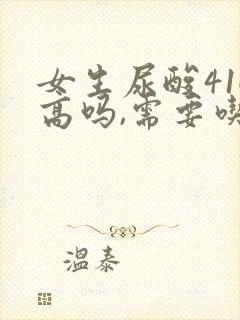 女生尿酸41
高吗,需要
温泰